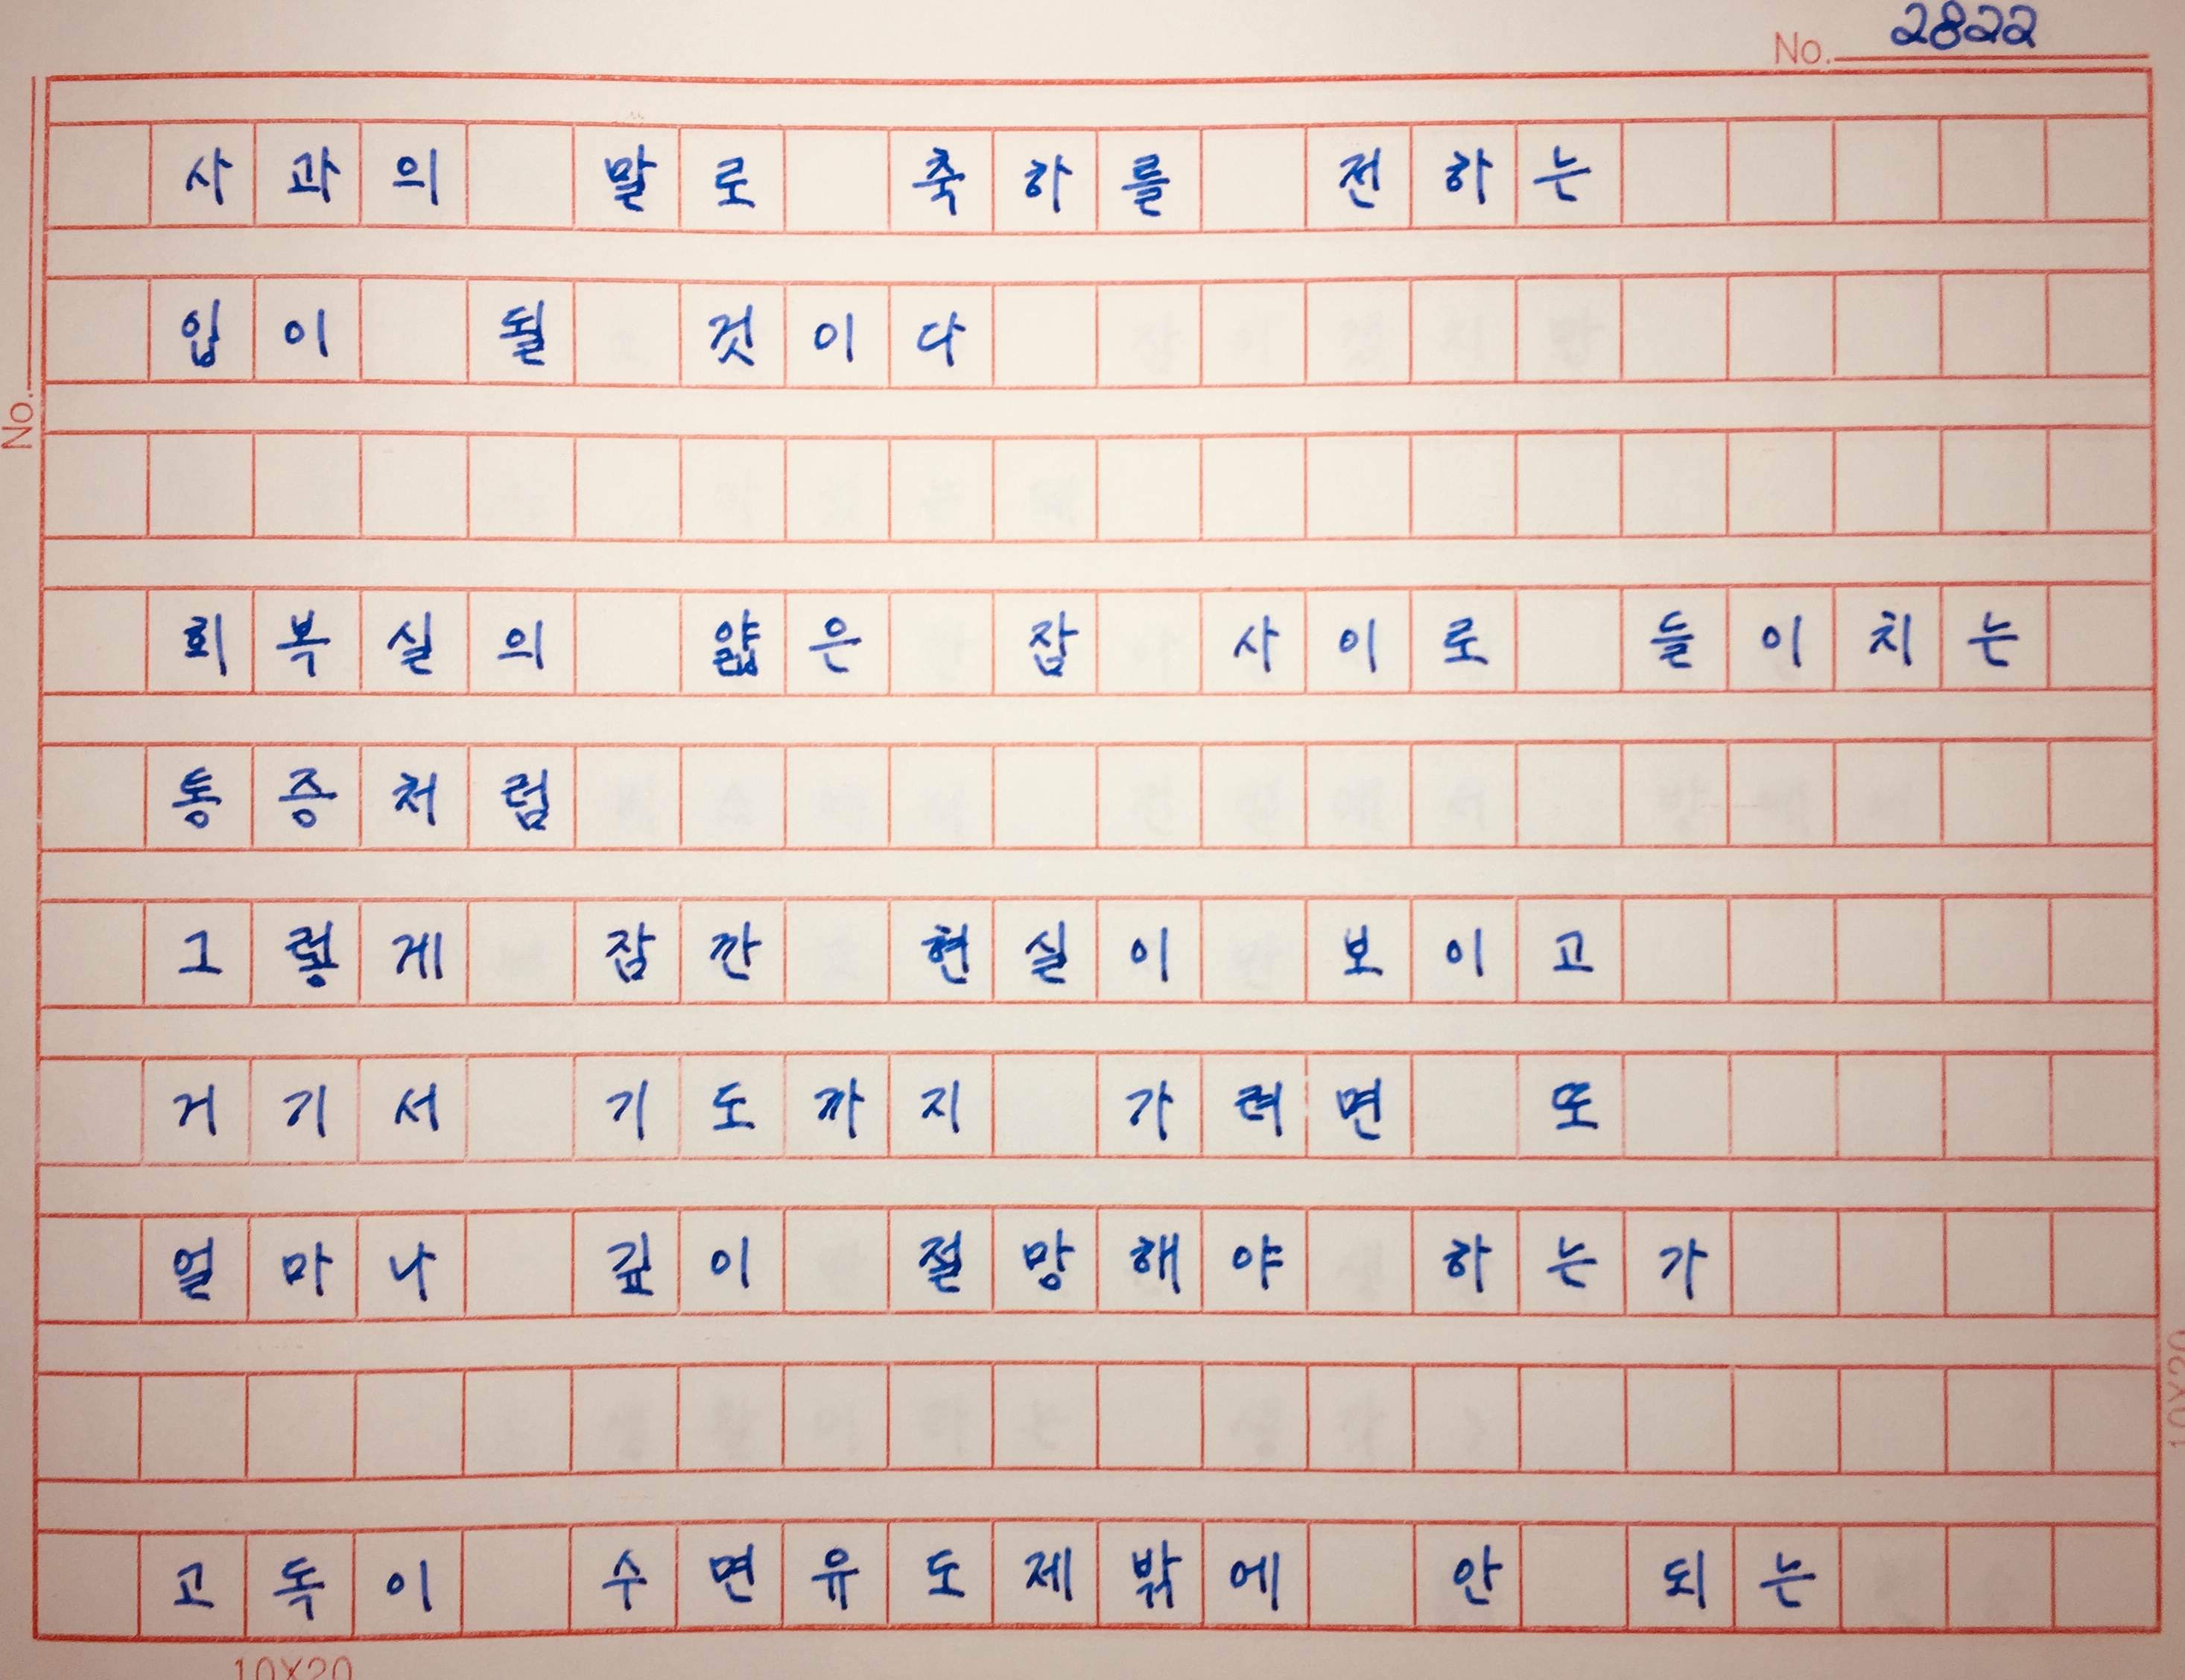 No. 2822
사과의 말로 축하를 전하는
입이 될 것이다
No.
회복실의 얇은 잠 사이로 들이치는
통증처럼
그렇게 잠깐 현실이 보이고
거기서 기도까지 가려면 또
얼마나 깊이 절망해야 하는가
고독이 수면유도제밖에 안 되는
10X20
10X20